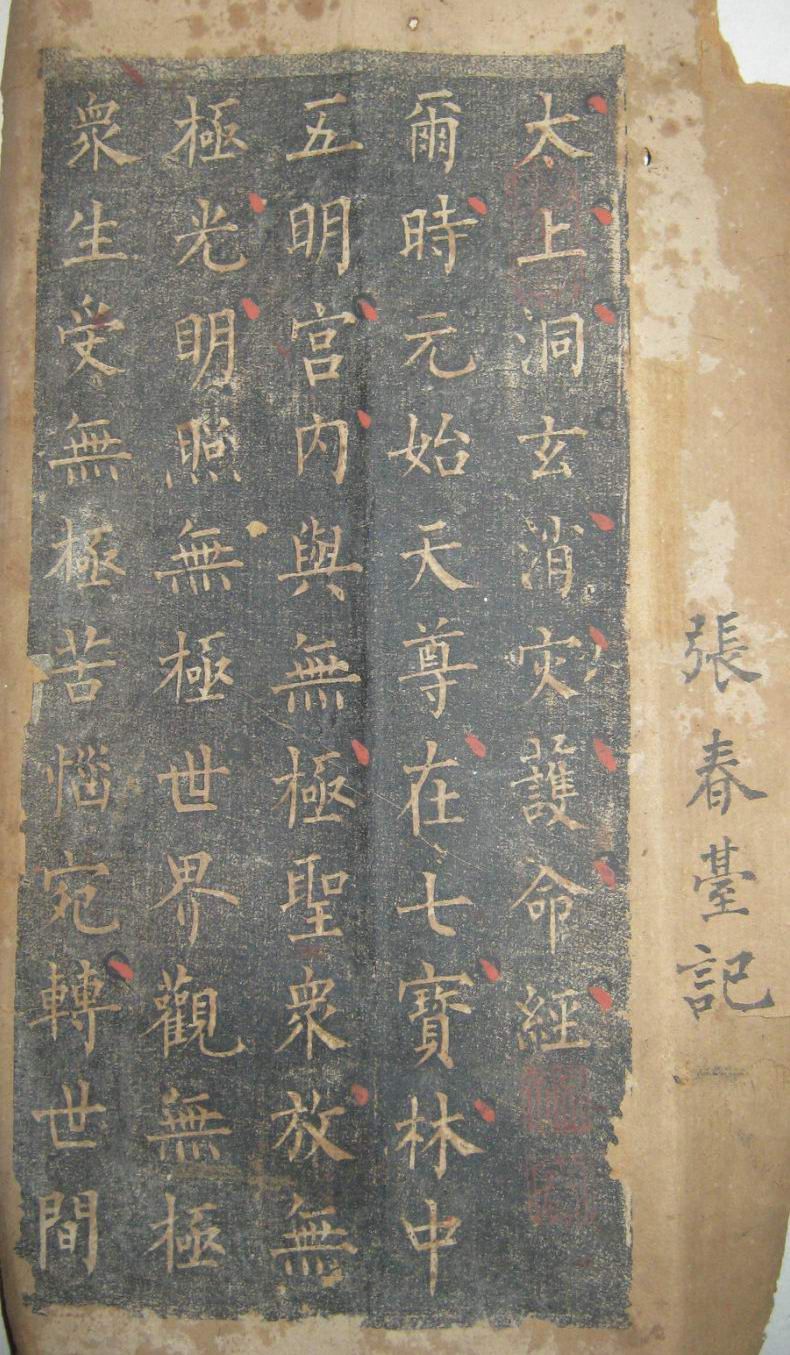 太上洞玄消灾護命經
爾時元始天尊在七寶林中
五明宮內與無極聖衆放無
極光明照無極世界觀無極
衆生受無極苦惱宛轉世間
張春臺記